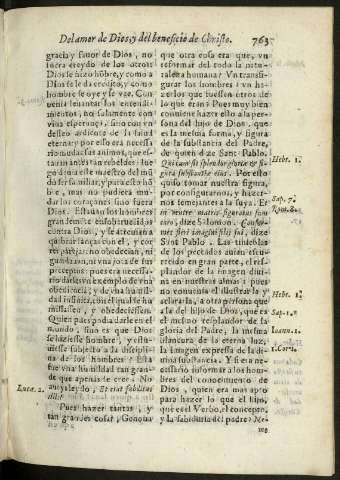 Del amor de Dios, y del beneficio de Christo. 763
gracia y favor de Dios, no
luera creydo de los otros
Dios se hizo hõbre, y como a
Dios se le da credito, y como
hombre se oye y se vee. Con-
venia levantar los entendi-
mientos, no solamente con
viva esperança, sino con vn
desseo ardiente de la salud
eterna: y por esto era necessa-
rio mudar sus animos, que es-
tavan
y este maestro del mũ-
do ser familiar, y para esto hõ-
bre, mas no pudiera mu-
dar los coraçones sino fuera
Dios. Estavan los hombres
grandemente
contra Dios, y se atrevian a
quebrar lanças con el, y cor-
rer parejas: no obedecian, ni
guardavan, ni vna jota de sus
preceptos: pues era necessa-
rio darles vn exemplo de viva
obediencia; y de vna humil-
dad infinita, con el qual se hu-
millassen, y obedeciessen.
Quien pues pudo dar esto al
mundo, sino es que Dios
se hiziesse hombre, y estu-
viesse subjecto a la discipli-
na de los hombres? Esta
fue vna humildad tan gran-
de que apenas se cree. No
aveys leydo, Et erat subditus
illis?
Pues hazer tantas, y
tan grandes cosas,
Lucæ. 2.
que otra cosa era que, vn
reformar del todo la natu-
raleza humana? Vn transfi-
gurar los hombres: vn ha-
zerlos que fuessen otros de
lo que eran? Pues muy bien
conviene hazer esto a la per-
sona del hijo de Dios, que
es la mesma forma, y figura
de la substancia del Padre,
de quien dize Sant Pablo.
Qui cum sit splendor gloriæ et fi-
gura substantiæ eius. Por esto
quiso tomar nuestra figura,
por configurarnos, y hazer-
nos semejantes a la suya.
dize Salomon. Confor-
mes fieri imaginis filij sui, dize
Sant Pablo. Las tinieblas
de los pecados avian escu-
recido en gran parte, el res-
plandor de la imagen divi-
na en nuestras almas: pues
no convenia el illustrar la y
esclarecer la, a otra persona que
a la del hijo de Dios, que es
el mesmo resplandor de la
gloria del Padre, la mesma
blancura de la eterna luz,
la imagen expressa de la di-
vina sustancia. Y si era ne-
cessario informar a los hom-
bres del conocimiento de
Dios, quien era mas apto
para hazer lo que el hijo,
que es el Verbo, el concepto,
y la sabiduria del padre? Ne-
Hebr. 1.
Sap. 7.
Rom. 8.
Hebr. 1.
Sap.
Ioann. 1.
1. Cor. 1.